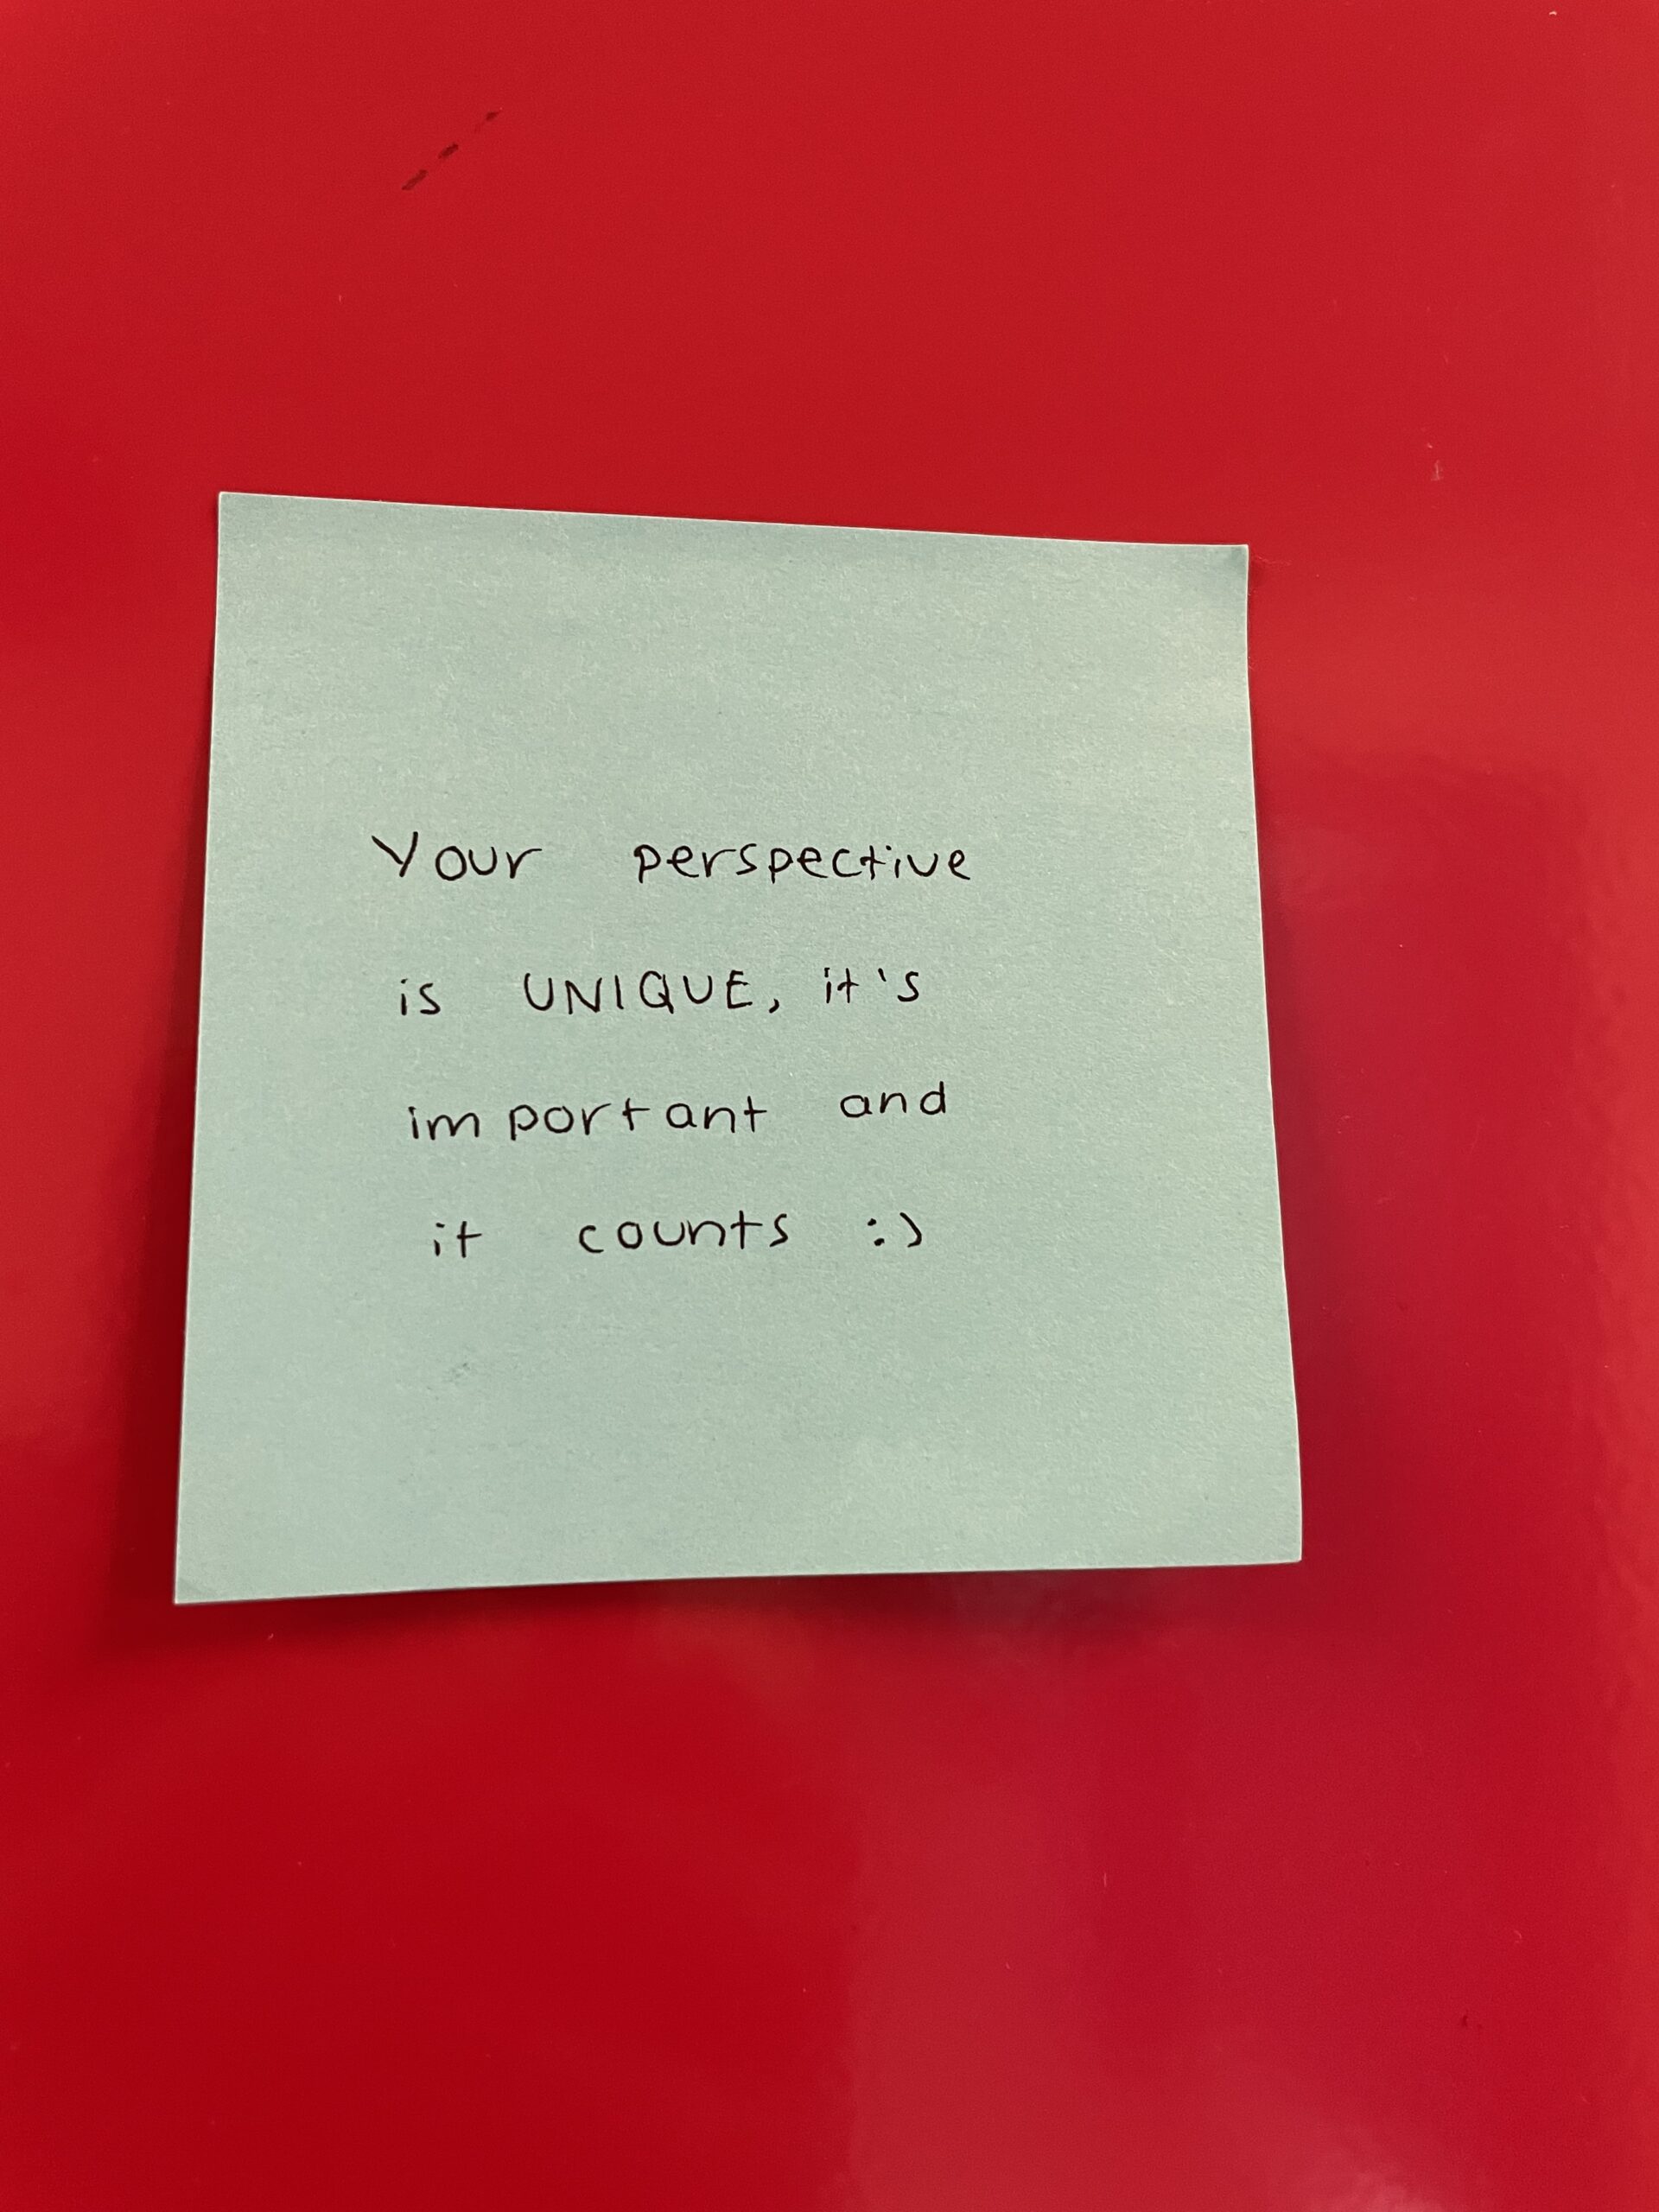 Your perspective
is UNIQUE, it's
important and
it counts :)